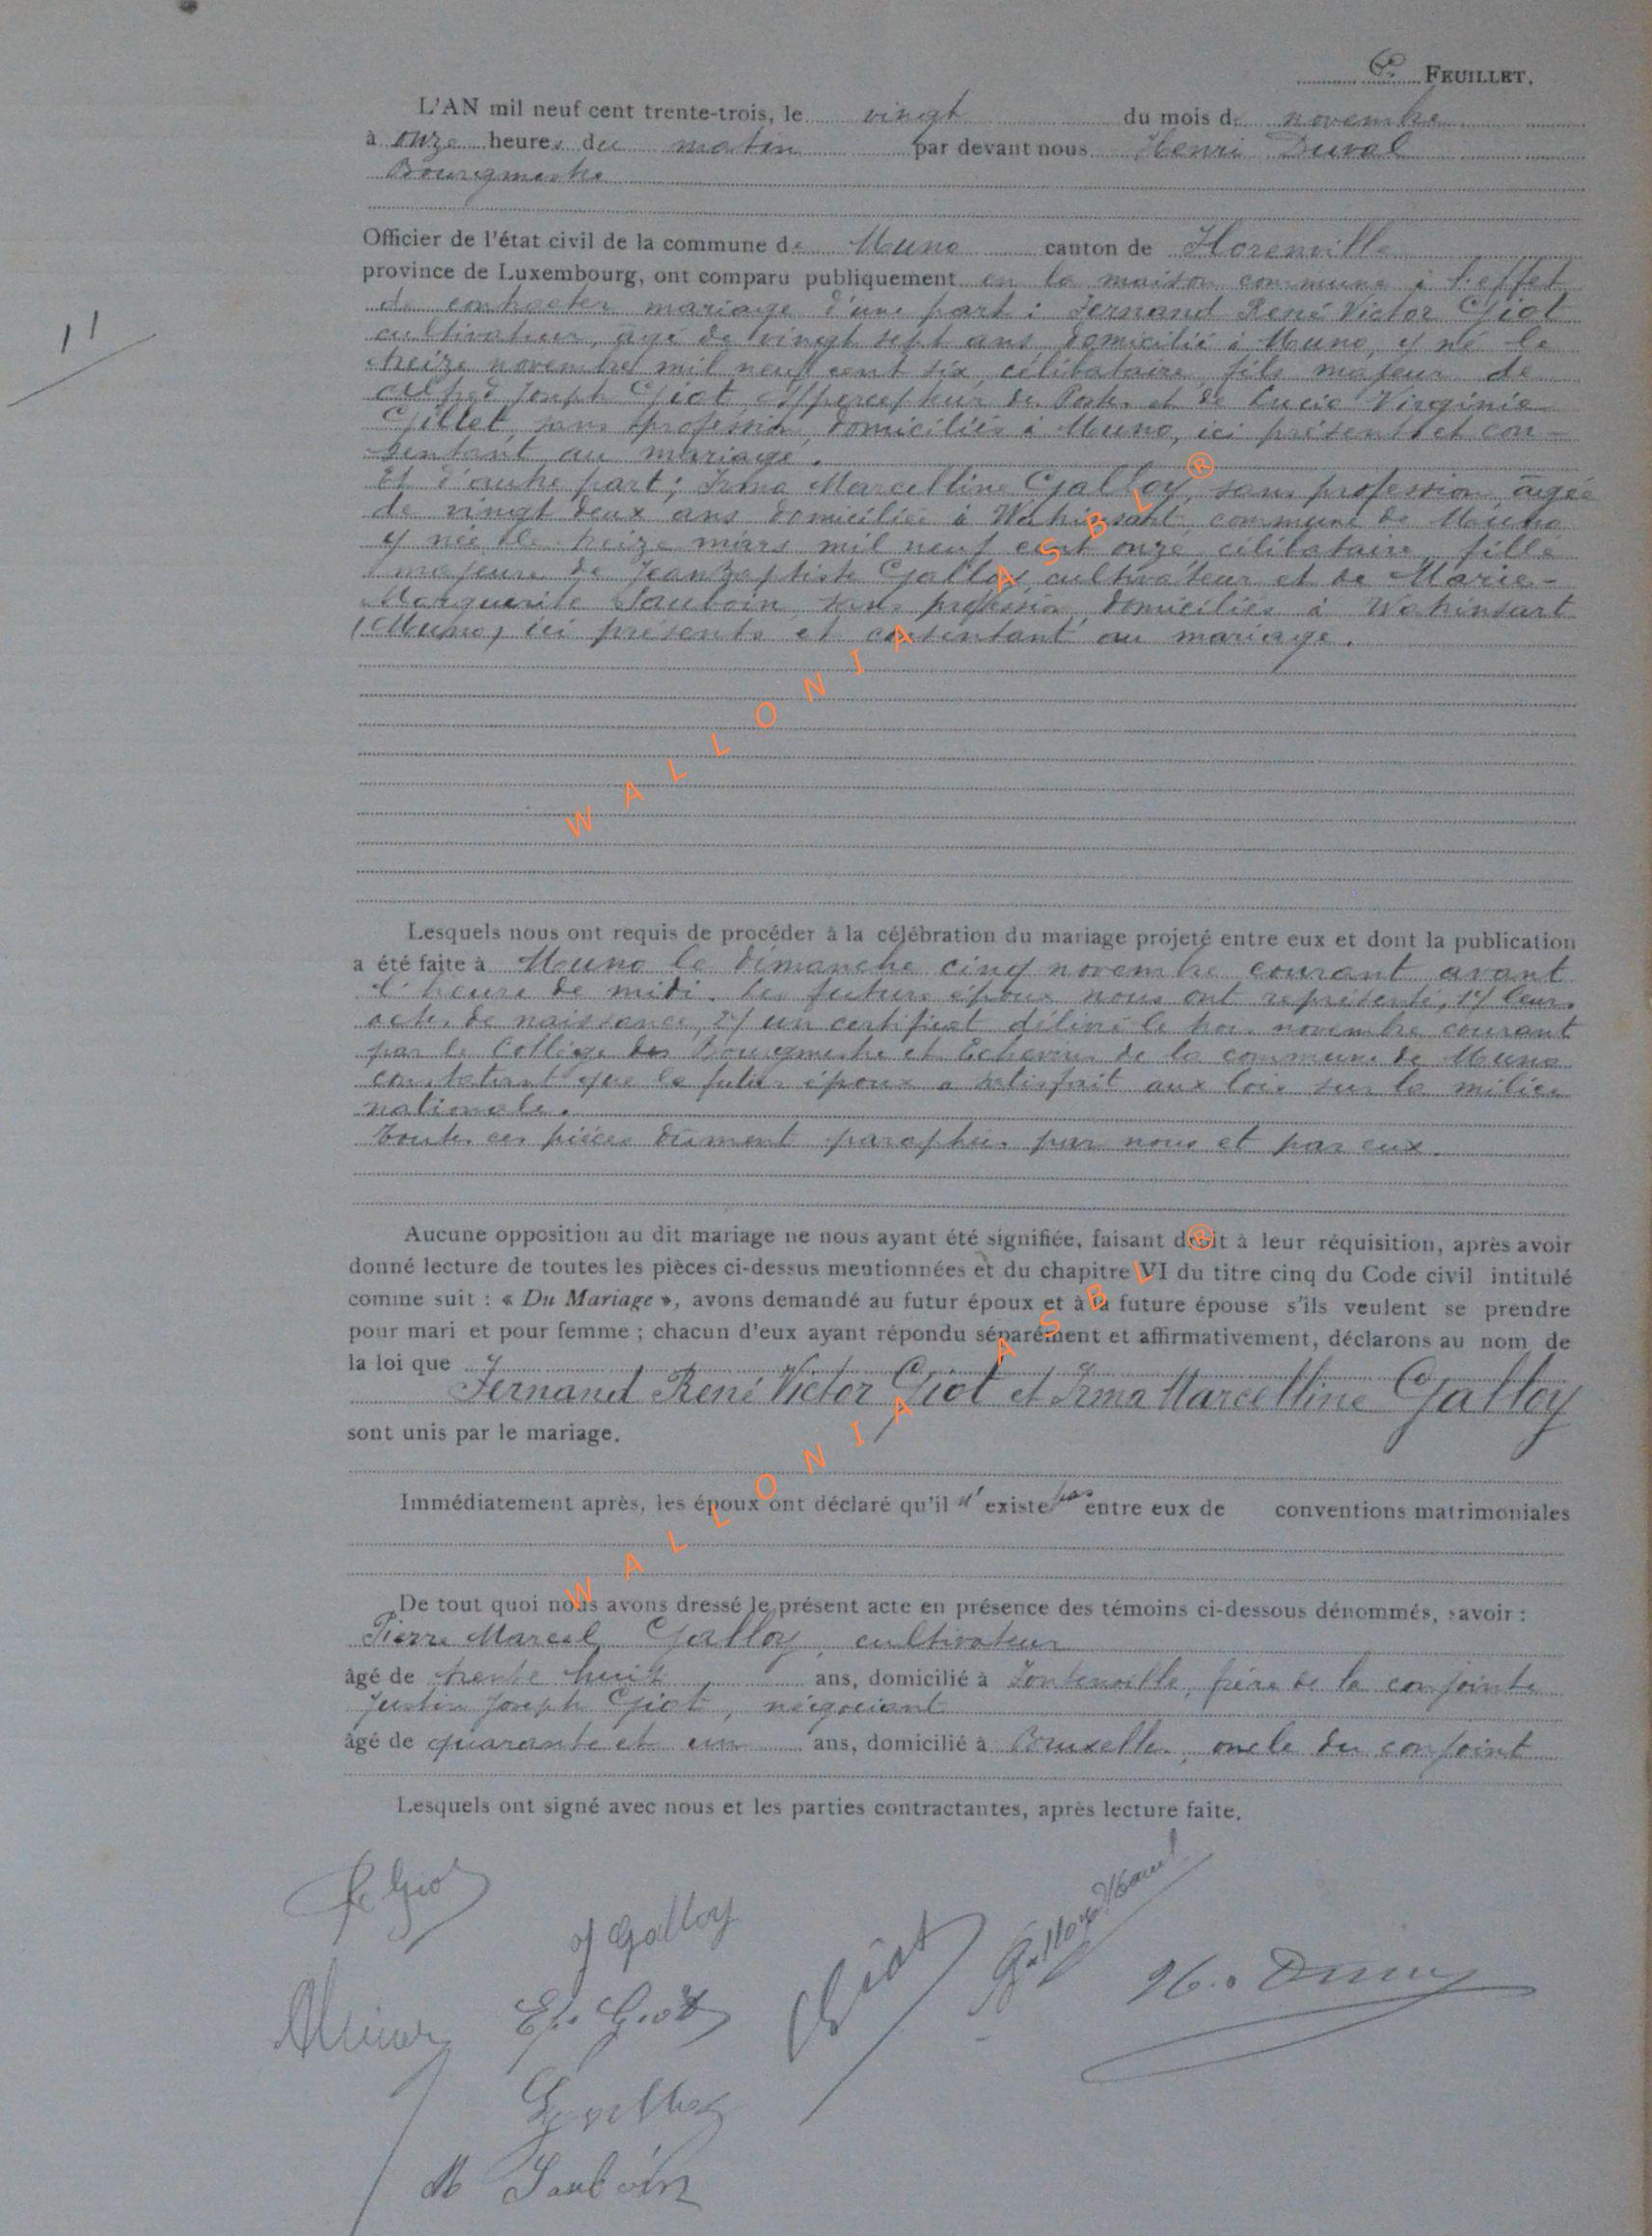 6e FEUILLET.
L'AN mil neuf cent trente-trois, le vingt du mois de novembre
à onze heures du matin par devant nous Henri Duval
Bourgmestre
Officier de l'état civil de la commune de Muno canton de Florenville
province de Luxembourg, ont comparu publiquement en la maison commune à l'effet
de contracter mariage d'une part : Fernand René Victor Giot
cultivateur, âgé de vingt sept ans domicilié à Muno, y né le
treize novembre mil neuf cent six, célibataire, fils majeur de
Alfred Joseph Giot, percepteur des Postes et de Lucie Virginie
Gillet, sans profession, domiciliés à Muno, ici présents et con-
sentant au mariage.
Et d'autre part ; Irma Marcelline Galloy, sans profession âgée
de vingt deux ans domiciliée à Watrinsart, commune de Muno
y née le treize mars mil neuf cent onze, célibataire, fille
majeure de Jean Baptiste Galloy cultivateur et de Marie-
Marguerite Sauboin, sans profession, domiciliés à Watrinsart
(Muno) ici présents et consentant au mariage.
WALLONIA ASBL ®
Lesquels nous ont requis de procéder à la célébration du mariage projeté entre eux et dont la publication
a été faite à Muno le dimanche cinq novembre courant avant
l'heure de midi. Les futurs époux nous ont représenté, 1/ leurs
actes de naissance, 2/ un certificat délivré le trois novembre courant
par le Collège des Bourgmestre et Echevins de la commune de Muno
constatant que le futur époux a satisfait aux lois sur la milice
nationale.
Toutes ces pièces dûment paraphées par nous et par eux.
Aucune opposition au dit mariage ne nous ayant été signifiée, faisant droit à leur réquisition, après avoir
donné lecture de toutes les pièces ci-dessus mentionnées et du chapitre VI du titre cinq du Code civil intitulé
comme suit : « Du Mariage », avons demandé au futur époux et à la future épouse s'ils veulent se prendre
pour mari et pour femme ; chacun d'eux ayant répondu séparément et affirmativement, déclarons au nom de
la loi que
Fernand René Victor Giot et Irma Marcelline Galloy
sont unis par le mariage.
Immédiatement après, les époux ont déclaré qu'il n'existe pas entre eux de conventions matrimoniales
WALLONIA ASBL ®
De tout quoi nous avons dressé le présent acte en présence des témoins ci-dessous dénommés, savoir :
Pierre Marcel Galloy, cultivateur
âgé de trente huit ans, domicilié à Fontenoille, frère de la conjointe
Justin Joseph Giot, négociant
âgé de quarante et un ans, domicilié à Bruxelles, oncle du conjoint
Lesquels ont signé avec nous et les parties contractantes, après lecture faite.
F Giot
J Galloy
Giot
Galloy Marcel
H. Duval
Giot
M Sauboin
11